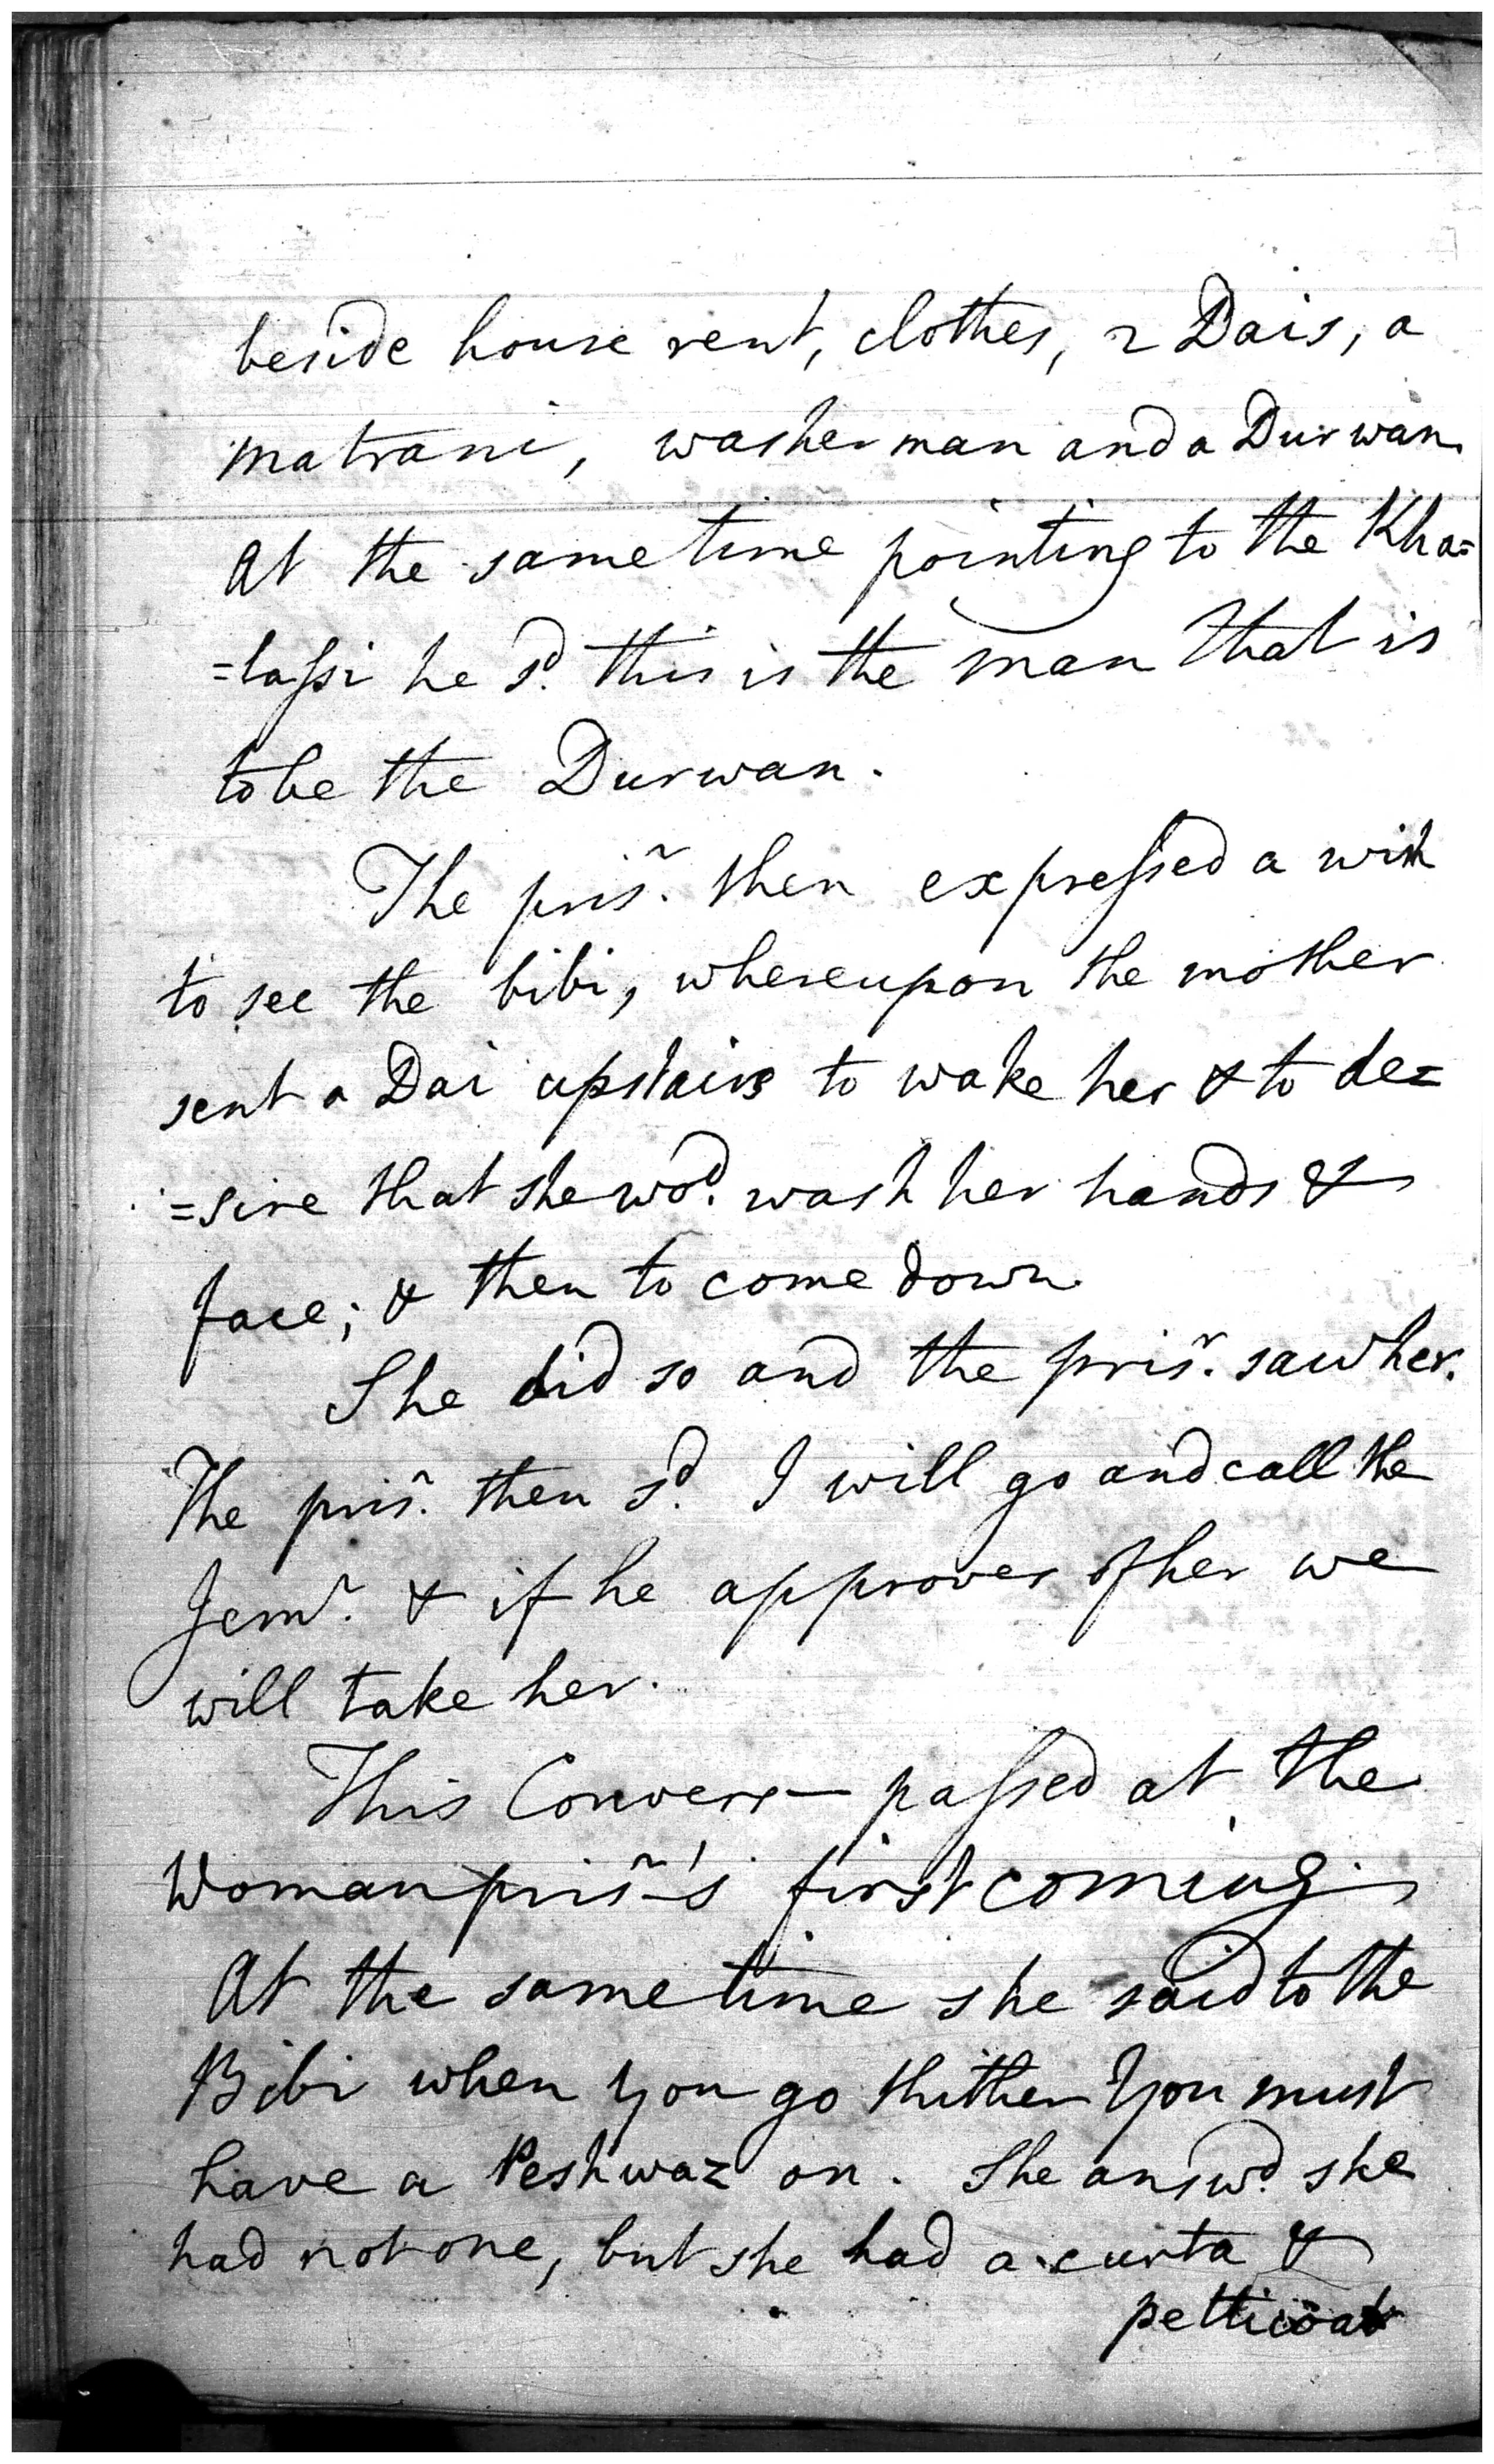 beside house rent, clothes, 2 Dais, a
matrani, washerman and a Durwan.
At the same time pointing to the Kha=
=laſsi he sd. this is the man that is
to be the Durwan.
The prisr. then expreſsed a wish
to see the bibi, whereupon the mother
sent a Dai upstairs to wake her & to de=
=sire that she wod. wash her hands &
face; & then to come down
She did so and the prisr. saw her.
The prisr. then sd. I will go and call the
Jemr. & if he approves of her we
will take her.
This Convers— paſsed at the
Woman prisr's first coming.
At the same time she said to the
Bibi when you go thither you must
have a Peshwaz on. She answd. she
had not one, but she had a curta &
petticoat